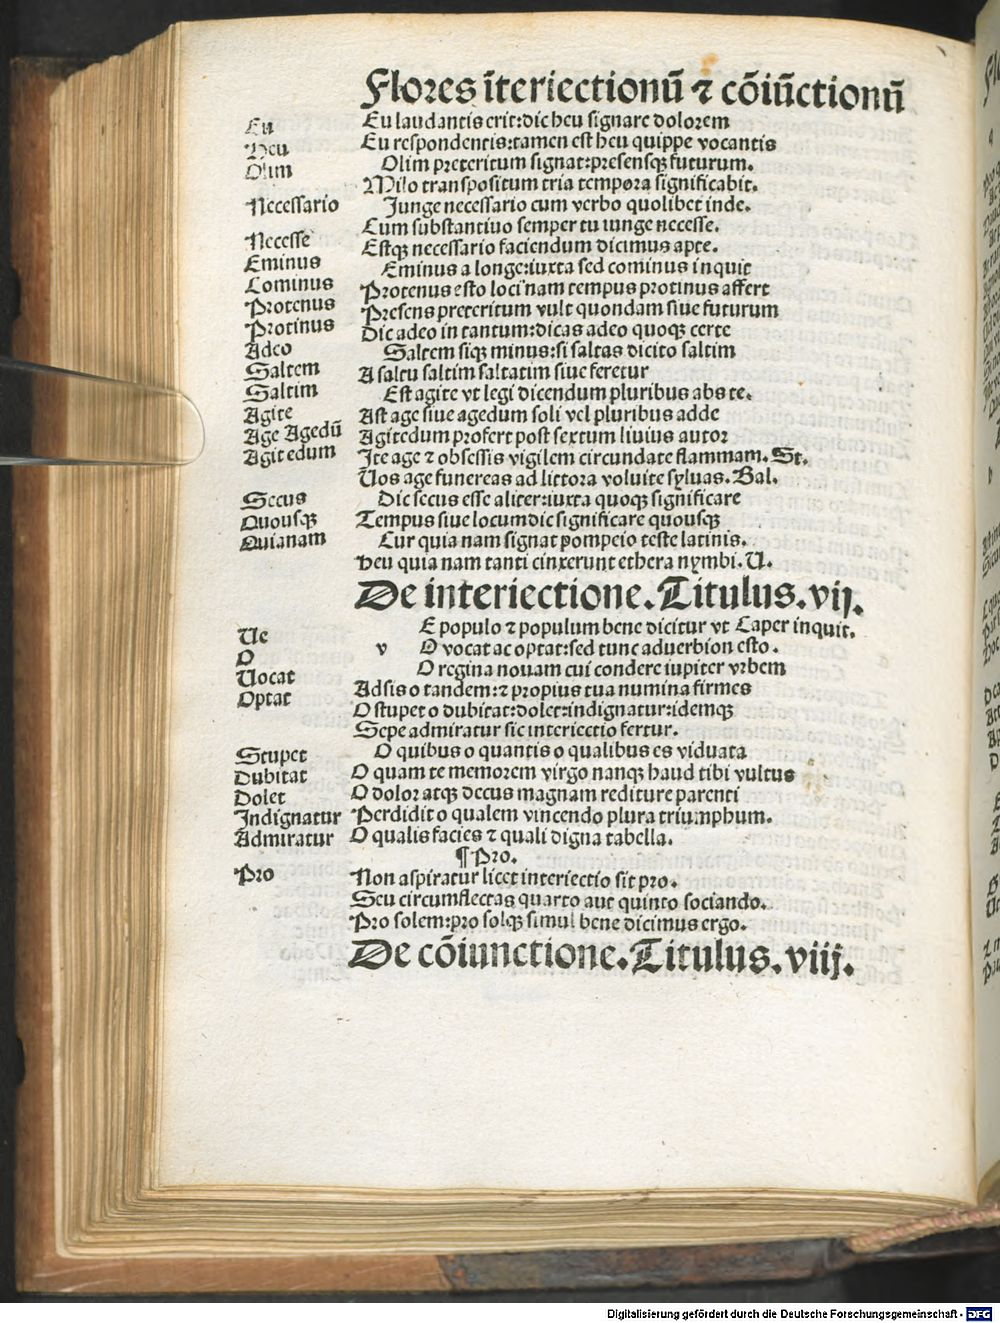 Flores īteriectionū ⁊ cōiūctionū
Eu Eu laudantis erit:dic heu signare dolorem
Heu Eu respondentis:tamen est heu quippe vocantis
Olim Olim preteritum signat:presensqꝫ futurum.
Milo transpositum tria tempora significabit.
Necessario Junge necessario cum verbo quolibet inde.
Cum substantiuo semper tu iunge necesse.
Necesse Estqꝫ necessario faciendum dicimus apte.
Eminus Eminus a longe:iuxta sed cominus inquit
Cominus Protenus esto loci nam tempus protinus affert
Protenus Presens preteritum vult quondam siue futurum
Protinus Dic adeo in tantum:dicas adeo quoqꝫ certe
Adeo Saltem siqꝫ minus:si saltas dicito saltim
Saltem A saltu saltim saltatim siue feretur
Saltim Est agite vt legi dicendum pluribus abs te.
Agite Ast age siue agedum soli vel pluribus adde
Age Agedū Agitedum profert post sextum liuius autor
Agitedum Ite age ⁊ obsessis vigilem circundate flammam. St.
Uos age funereas ad littora voluite syluas. Bal.
Secus Dic secus esse aliter:iuxta quoqꝫ significare
Quousqꝫ Tempus siue locum dic significare quousqꝫ
Quianam Cur quia nam signat pompeio teste latinis.
Heu quia nam tanti cinxerunt ethera nymbi. U.
De interiectione. Titulus. vij.
Ue E populo ⁊ populum bene dicitur vt Caper inquit.
O v O vocat ac optat:sed tunc aduerbion esto.
Uocat O regina nouam cui condere iupiter vrbem
Optat Adsis o tandem:⁊ propius tua numina firmes
O stupet o dubitat:dolet:indignatur:idemqꝫ
Sepe admiratur sic interiectio fertur.
Stupet O quibus o quantis o qualibus es viduata
Dubitat O quam te memorem virgo nanqꝫ haud tibi vultus
Dolet O dolor atqꝫ decus magnam rediture parenti
Indignatur Perdidit o qualem vincendo plura triumphum.
Admiratur O qualis facies ⁊ quali digna tabella.
¶ Pro.
Pro Non aspiratur licet interiectio sit pro.
Seu circumflectas quarto aut quinto sociando.
Pro solem:pro solqꝫ simul bene dicimus ergo.
De cōiunctione. Titulus. viij.
Digitalisierung gefördert durch die Deutsche Forschungsgemeinschaft - DFG